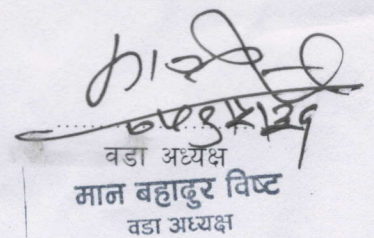 वडा अध्यक्ष
मान बहादुर विष्ट
वडा अध्यक्ष